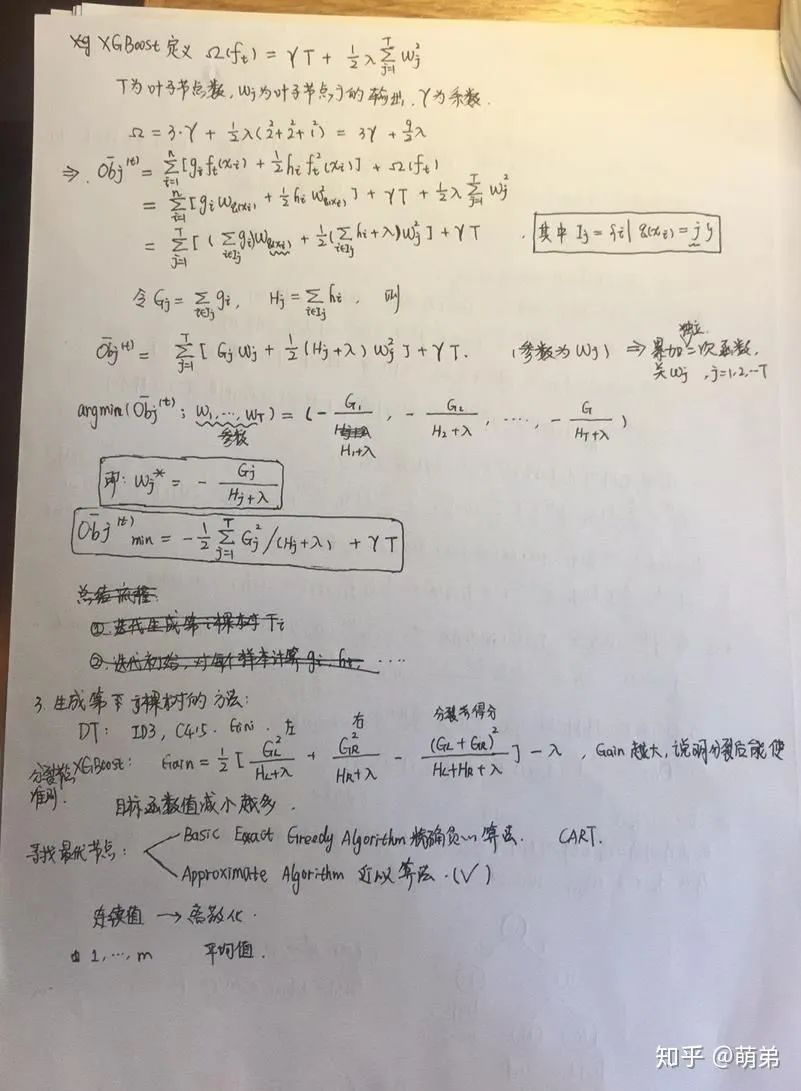 XGBoost 定义 Ω(fₜ) = γT + ½λ∑ⱼ₌₁ᵀ wⱼ²
T为叶子节点数, wⱼ为叶子节点j的输出, γ为系数.
Ω = 3·γ + ½λ(2²+2²+1²) = 3γ + 9/2 λ
⇒ Obj̄⁽ᵗ⁾ = ∑ᵢ₌₁ⁿ [gᵢ fₜ(xᵢ) + ½hᵢ fₜ²(xᵢ)] + Ω(fₜ)
= ∑ᵢ₌₁ⁿ [gᵢ w_q(xᵢ) + ½hᵢ w²_q(xᵢ)] + γT + ½λ∑ⱼ₌₁ᵀ wⱼ²
= ∑ⱼ₌₁ᵀ [(∑_{i∈Iⱼ} gᵢ)w_q(xᵢ) + ½(∑_{i∈Iⱼ} hᵢ+λ)wⱼ²] + γT . 其中 Iⱼ = {i | q(xᵢ) = j}
令 Gⱼ = ∑_{i∈Iⱼ} gᵢ, Hⱼ = ∑_{i∈Iⱼ} hᵢ, 则
Obj̄⁽ᵗ⁾ = ∑ⱼ₌₁ᵀ [Gⱼwⱼ + ½(Hⱼ+λ)wⱼ²] + γT. (参数为wⱼ) ⇒ 累加独立二次函数,
关wⱼ, j=1,2,…T
argmin(Obj̄⁽ᵗ⁾; w₁,…,w_T) = (-G₁/(H₁+λ), -G₂/(H₂+λ), …, -G/(H_T+λ))
参数
即: wⱼ* = -Gⱼ/(Hⱼ+λ)
Obj̄⁽ᵗ⁾min = -½∑ⱼ₌₁ᵀ Gⱼ²/(Hⱼ+λ) + γT
总结流程:
① 迭代生成第i棵树
② 迭代初始, 对每个样本计算gᵢ hᵢ, ….
3. 生成第棵树的方法:
DT: ID3, C4.5, Gini. 左 右 分裂前得分
分裂 准则. XGBoost: Gain = ½[G_L²/(H_L+λ) + G_R²/(H_R+λ) - (G_L+G_R)²/(H_L+H_R+λ)] - λ, Gain越大, 说明分裂后能使
目标函数值减小越多.
寻找最优节点: Basic Exact Greedy Algorithm 精确贪心算法. CART.
Approximate Algorithm 近似算法.(√)
连续值 → 离散化.
1, …, m 平均值.
知乎 @萌弟